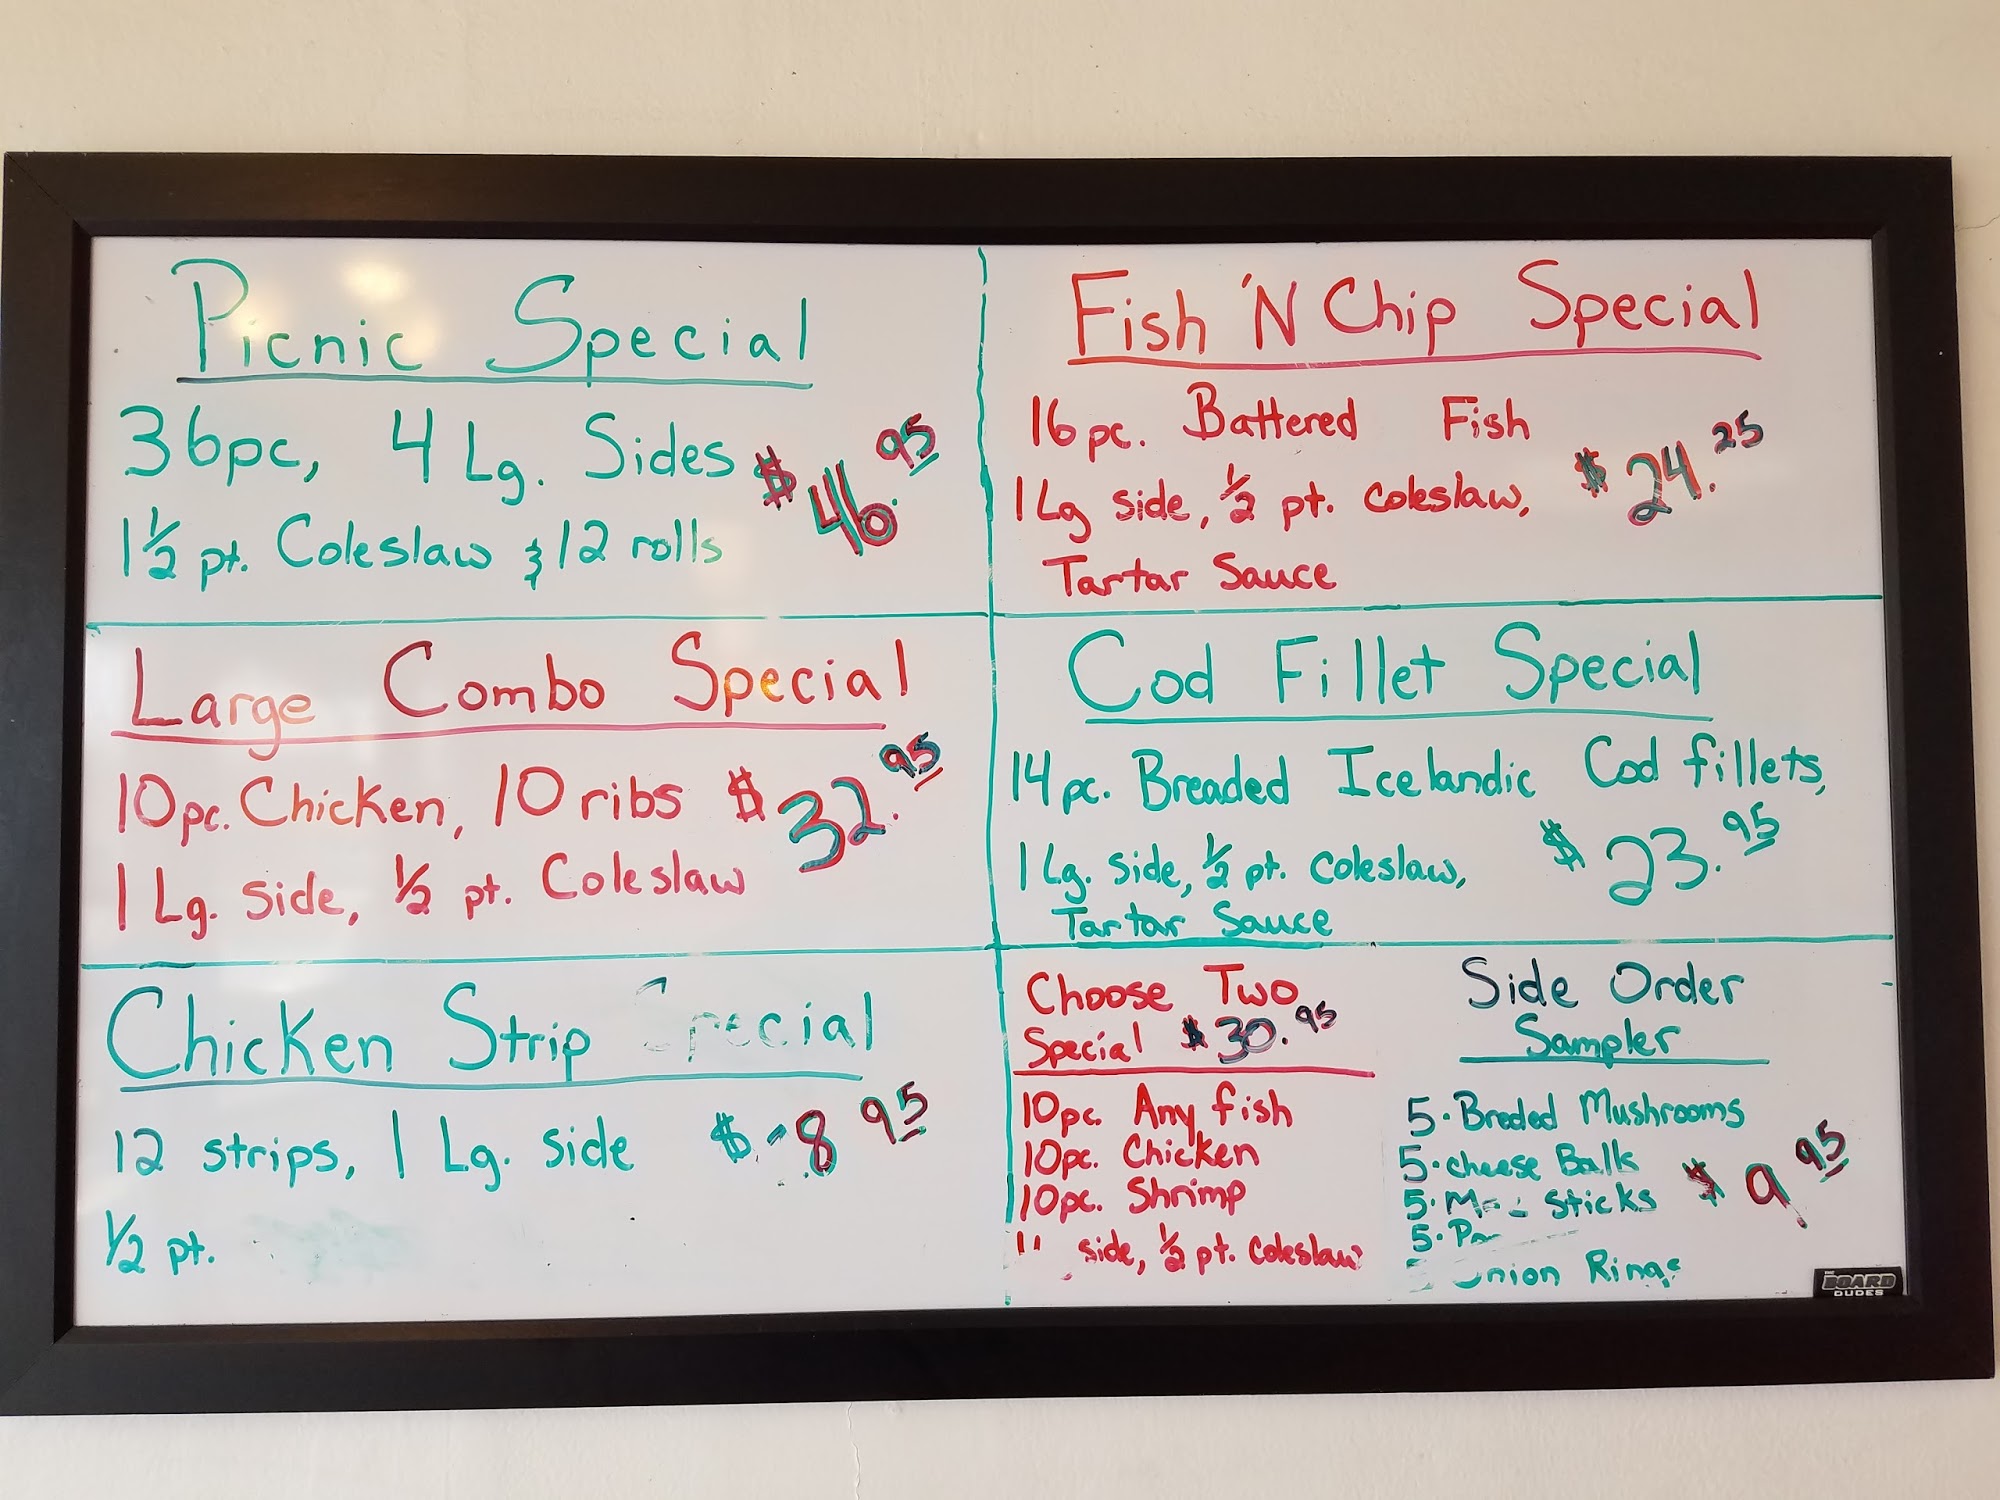 Picnic Special
36pc, 4 Lg. Sides
1 1/2 pt. Coleslaw & 12 rolls
$46.95
Large Combo Special
10pc. Chicken, 10 ribs
1 Lg. side, 1/2 pt. Coleslaw
$32.95
Chicken Strip Special
12 strips, 1 Lg. side
1/2 pt.
$ 8 95
Fish 'N Chip Special
16pc. Battered Fish
1 Lg side, 1/2 pt. coleslaw,
Tartar Sauce
$24.25
Cod Fillet Special
14pc. Breaded Icelandic Cod fillets,
1 Lg. side, 1/2 pt. coleslaw,
Tartar Sauce
$23.95
Choose Two
Special $30.95
10pc. Any fish
10pc. Chicken
10pc. Shrimp
side, 1/2 pt. coleslaw
Side Order
Sampler
5. Breded Mushrooms
5. cheese Balls
5. sticks
5.
Onion Rings
$9.95
THE BOARD DUDES